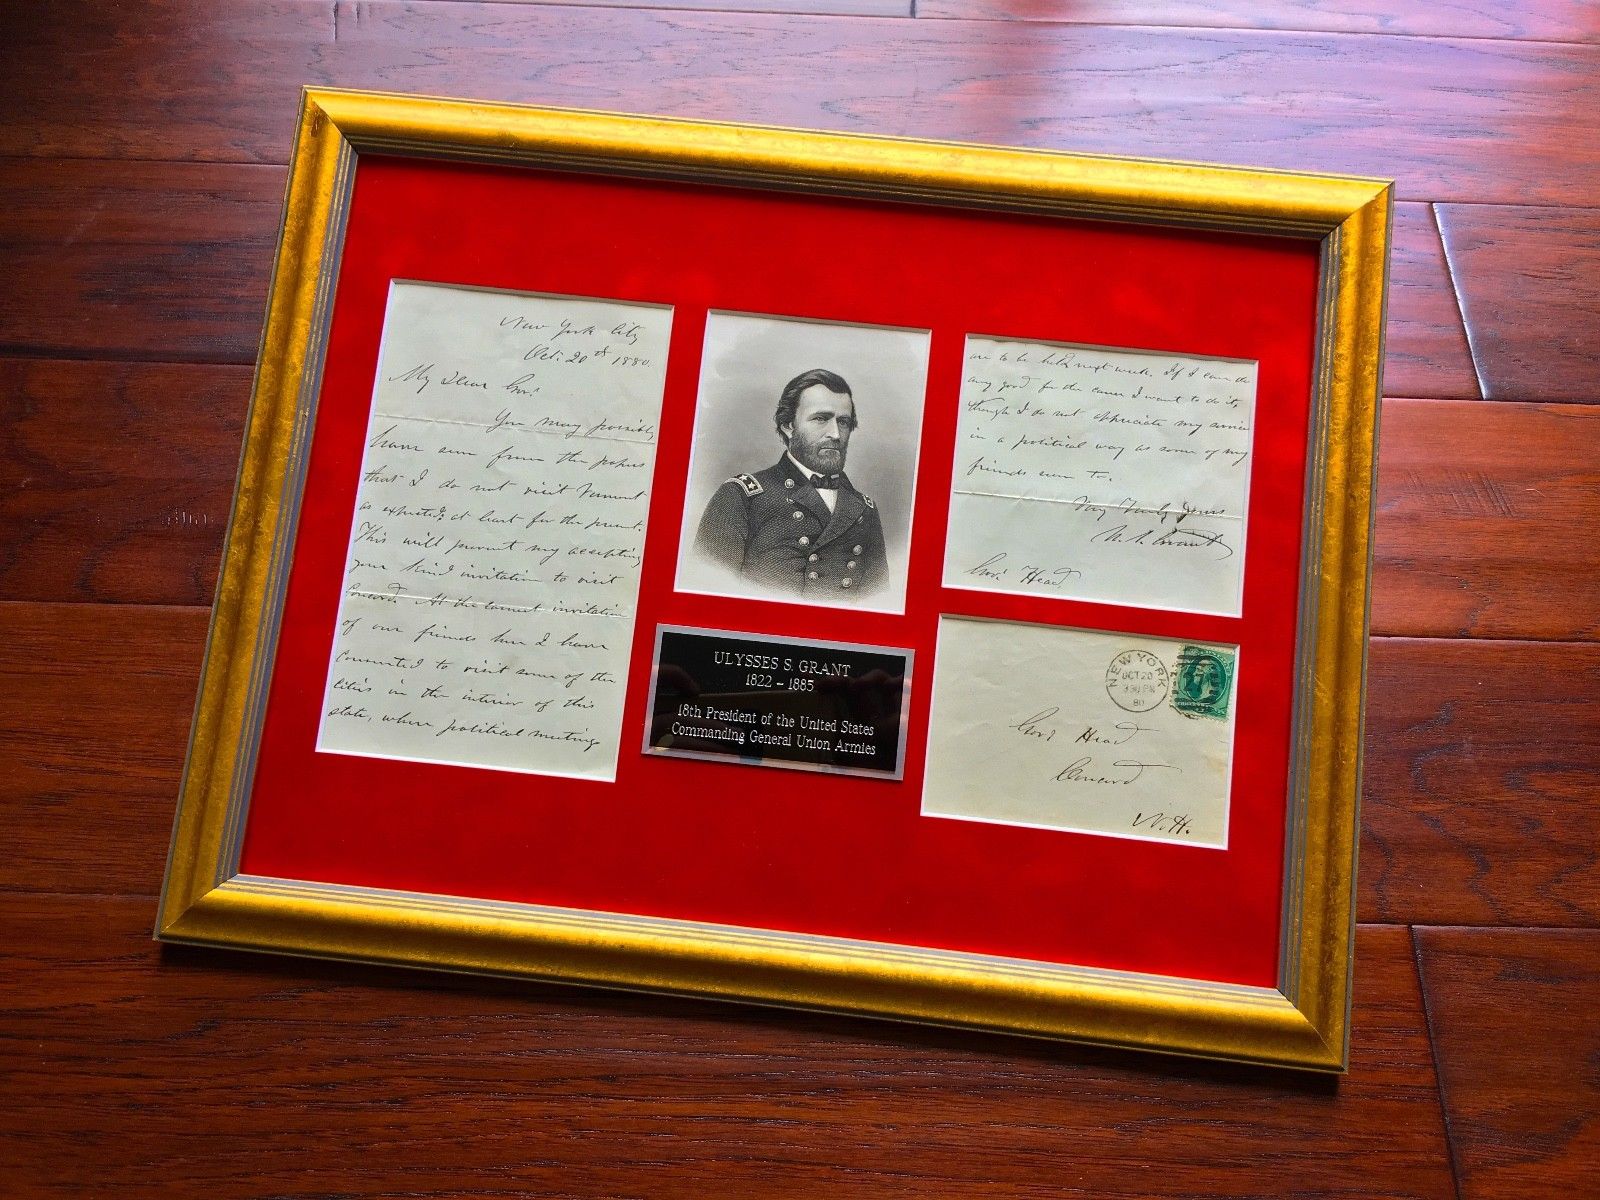 New York City
Oct. 20th 1880.
My Dear Gov:
You may possibly
have seen from the papers
that I do not visit Vermont
as expected; at least for the present.
This will prevent my accepting
your kind invitation to visit
Concord. At the earnest invitation
of our friends here I have
consented to visit some of the
cities in the interior of this
state, where political meetings
are to be held next week. If I can do
any good for the cause I want to do it,
though I do not appreciate my service
in a political way as some of my
friends seem to.
Very Truly Yours
U. S. Grant
Gov. Head
ULYSSES S. GRANT
1822 – 1885
18th President of the United States
Commanding General Union Armies
NEW YORK
OCT 20
3 30 PM
80
Gov. Head
Concord
N.H.